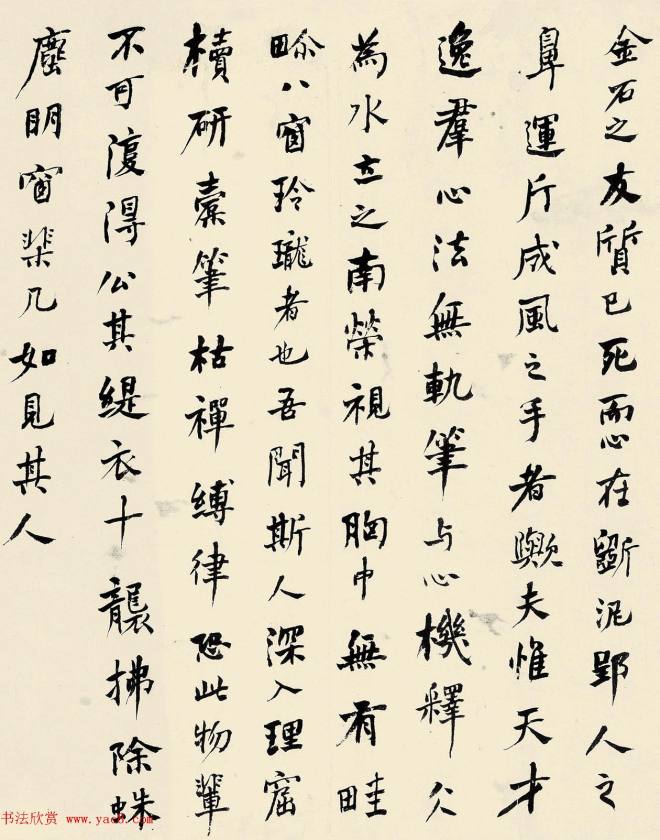 金石之友質已死而心在斵泥郢人之
鼻運斤成風之手者歟夫惟天才
逸羣心法無軌筆与心機釋冫
為水立之南榮視其胸中無有畦
畛八窗玲瓏者也吾聞斯人深入理窟
櫝研囊筆枯禪縛律恐此物輩
不可復得公其緹衣十襲拂除蛛
塵明窗棐几如見其人
书法欣赏 www.yac8.com